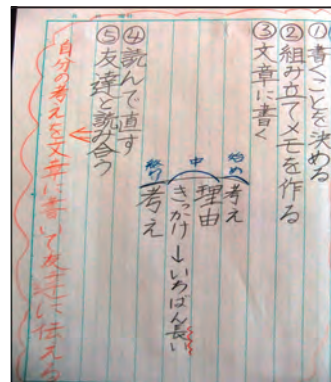 ①書くことを決める
②組み立てメモを作る
③文章に書く
始め 考え
中 理由
きっかけ→いちばん長い
終り 考え
④読んで直す
⑤友達と読み合う
自分の考えを文章に書いて友達に伝える